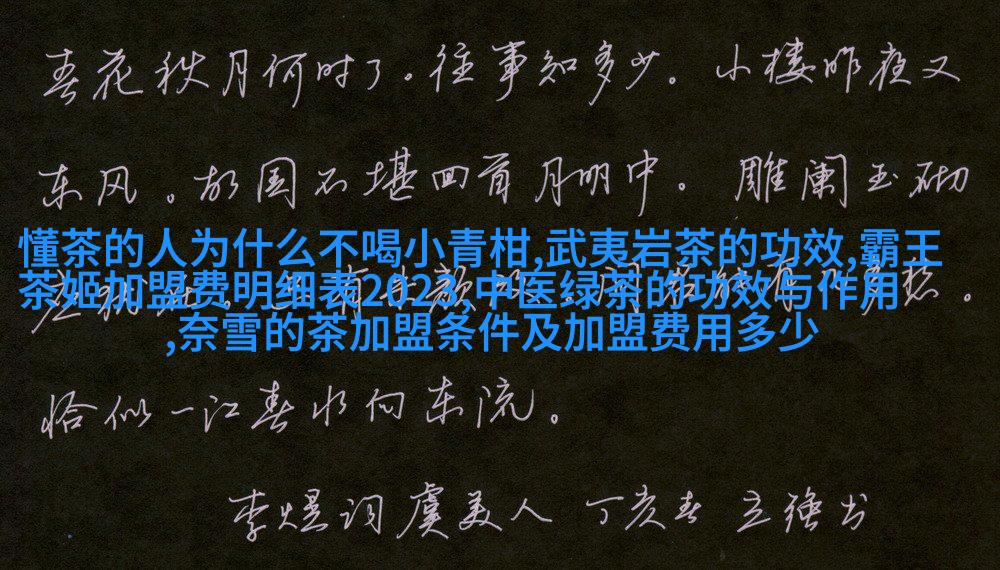 春花秋月何时了。往事知多少。小楼昨夜又
东风。故国不堪回首月明中。雕阑玉砌
懂茶的人为什么不喝小青柑,武夷岩茶的功效,霸王
茶姬加盟费明细表2023,中医绿茶的功效与作用
,奈雪的茶加盟条件及加盟费用多少
恰似一江春水向东流。
李煜词虞美人 丁亥春 立强书